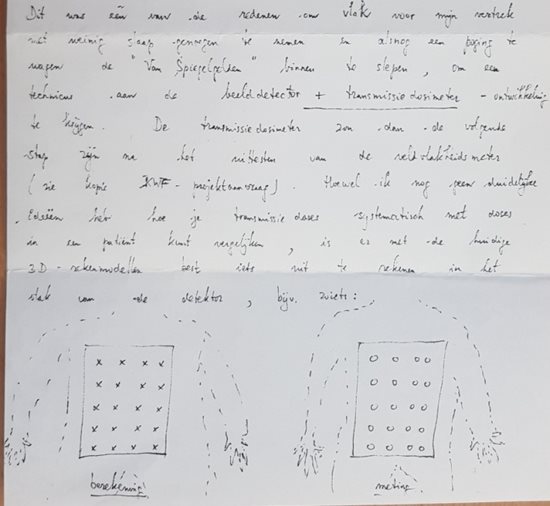 Dit was één van de redenen om vlak voor mijn vertrek
met weinig slaap genoegen te nemen en alsnog een poging te
wagen de "Van Spiegelgelden" binnen te slepen, om een
technicus aan de beelddetector + transmissiedosimeter - ontwikkeling
te krijgen. De transmissiedosimeter zou dan de volgende
stap zijn na het uittesten van de veldvlakheidsmeter
(zie kopie KWF - projektaanvraag). Hoewel ik nog geen duidelijke
ideeën heb hoe je transmissie doses systematisch met doses
in een patiënt kunt vergelijken, is er met de huidige
3D - rekenmodellen best iets uit te rekenen in het
vlak van de detektor, bijv. zoiets:
berekening meting